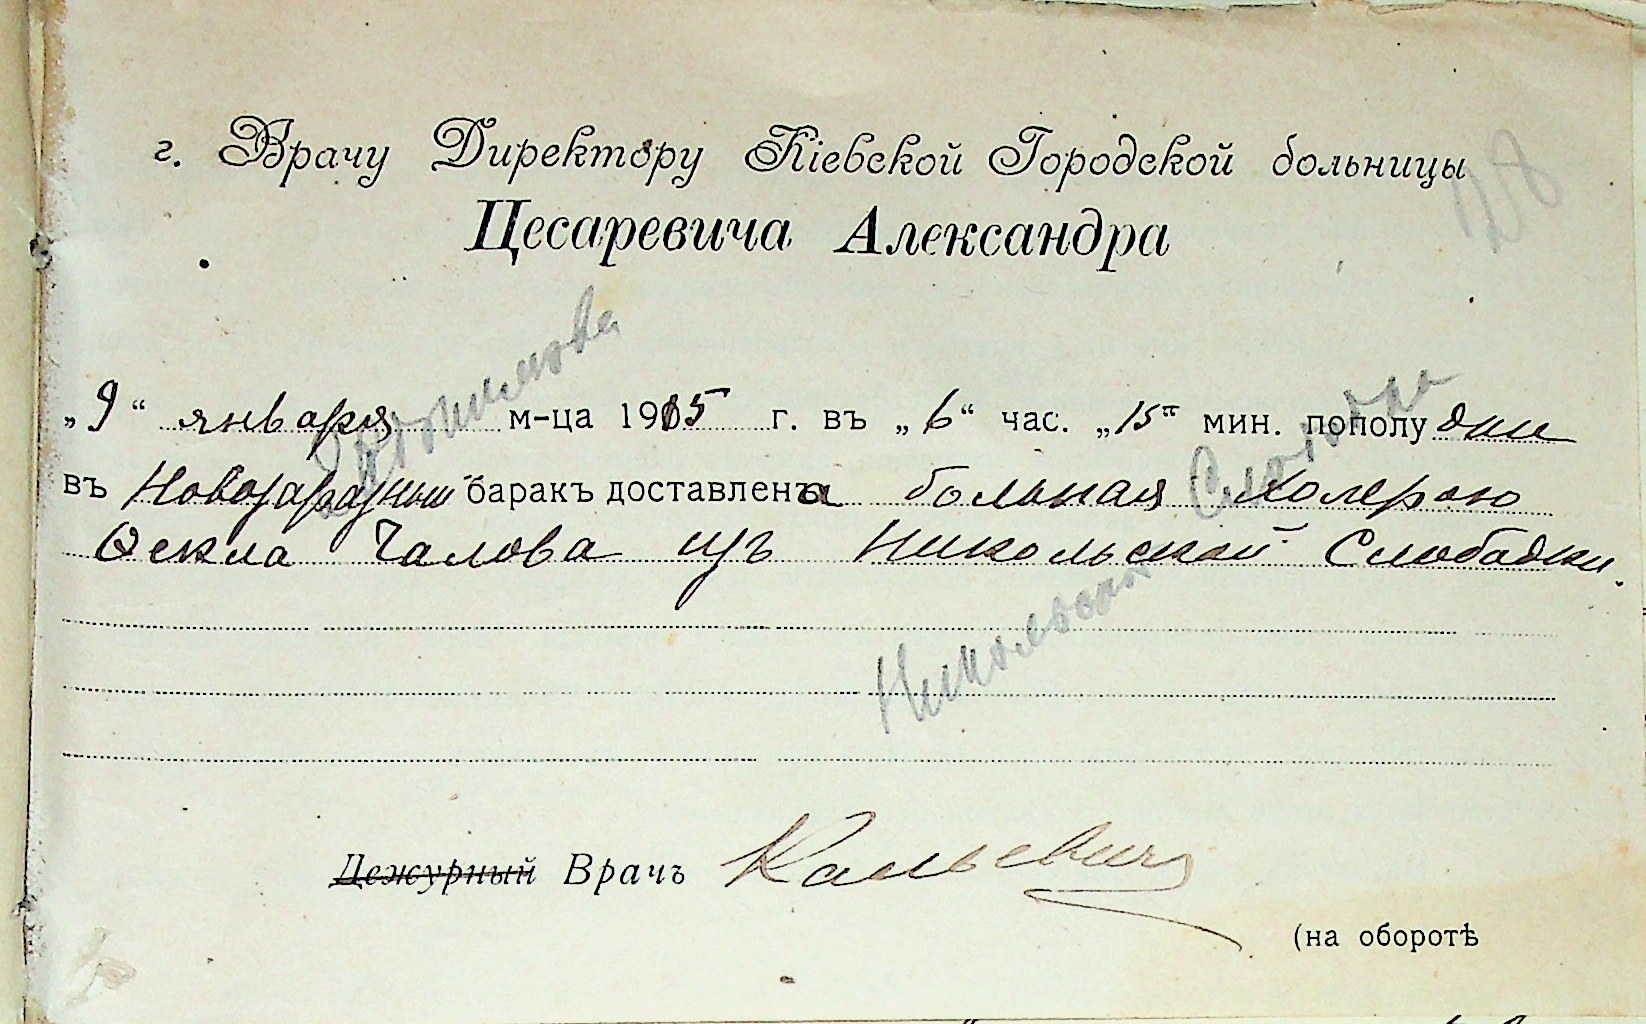 г. Врачу Директору Кіевской Городской больницы
128
Цесаревича Александра
„9“ января м-ца 1915 г. въ „6“ час. „15“ мин. пополудни
въ Новозаразный баракъ доставлена больная холерою
Ѳекла Чалова изъ Никольской Слободки.
Никольская Слободка
Дежурный Врачъ
(на оборотѣ